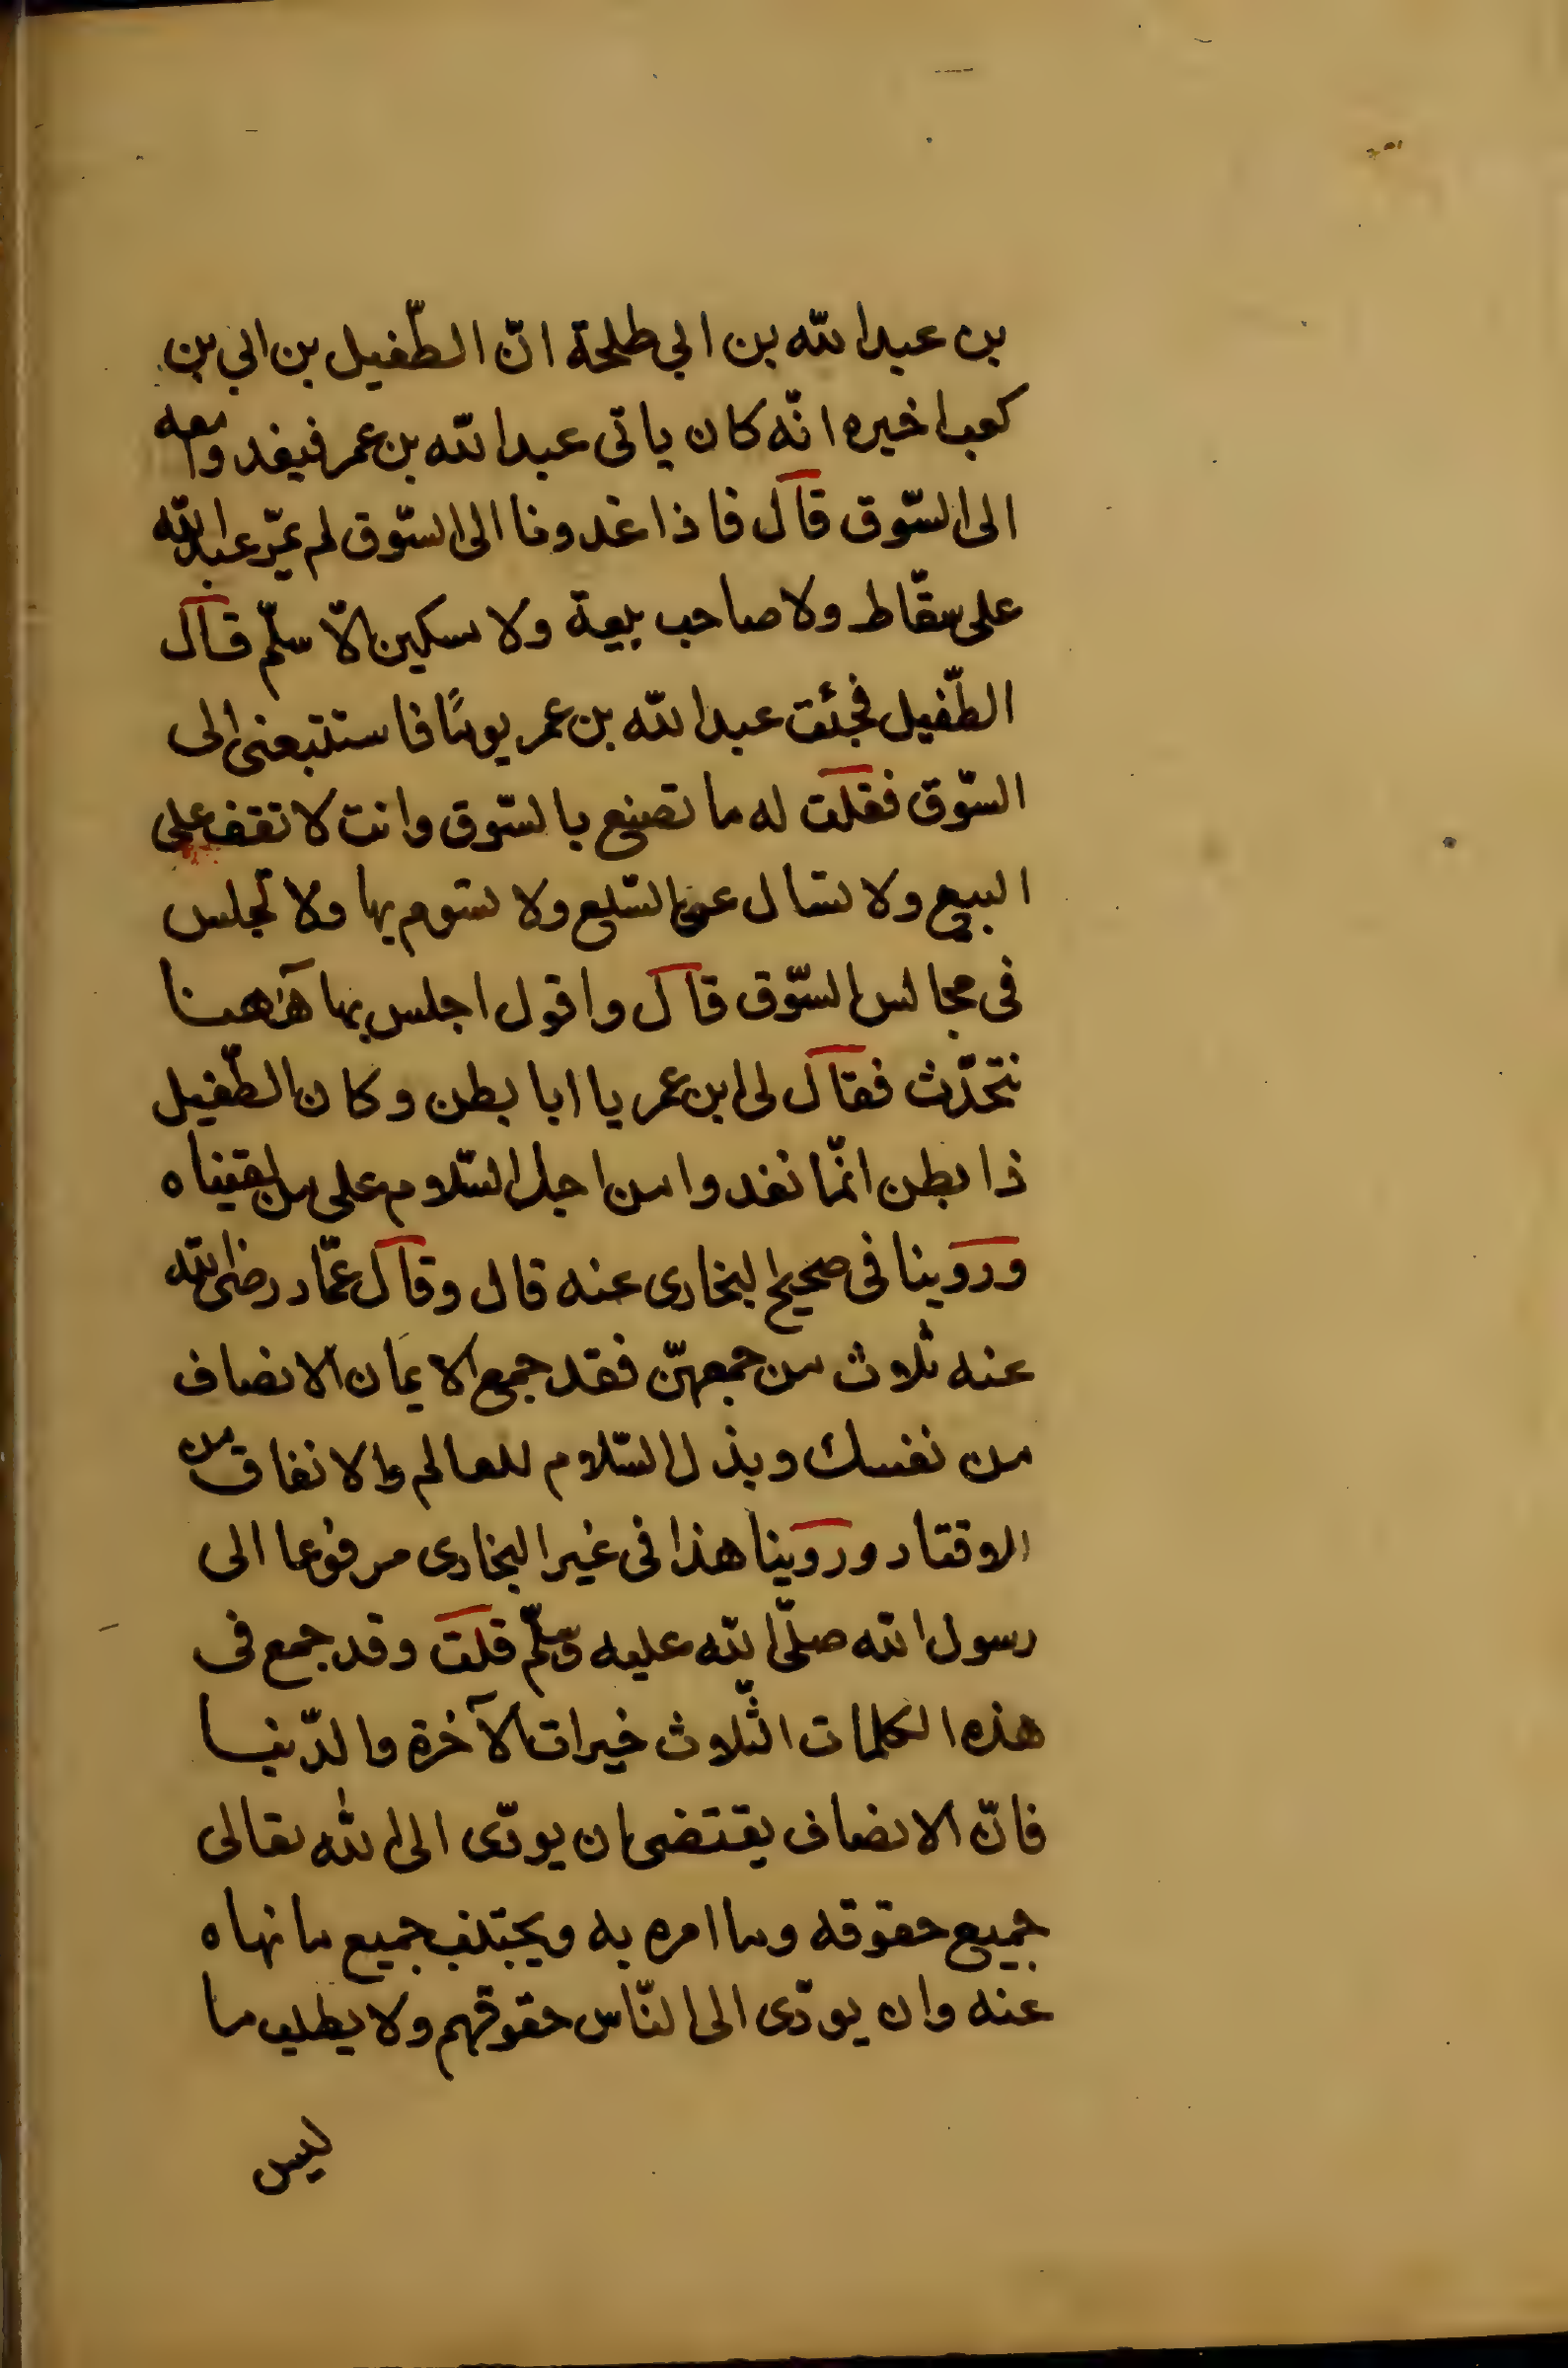 بن عبد الله بن ابي طلحة انّ الطّفيل بن ابي بن
كعب اخبره انّه كان ياتى عبد الله بن عمر فيغدوا معه
الى السّوق قال فاذا غدونا الى السّوق لم يمرّ عبد الله
على سقّاط ولا صاحب بيعة ولا مسكين الّا سلّم قال
الطّفيل فجئت عبد الله بن عمر يومًا فاستتبعنى الى
السّوق فقلت له ما تصنع بالسّوق وانت لا تقف على
البيع ولا تسال عن السّلع ولا تسوم بها ولا تجلس
فى مجالس السّوق قال واقول اجلس بها هٓاهنا
نتحدّث فقال لى ابن عمر يا ابا بطن وكان الطّفيل
ذا بطن انّما نغدوا من اجل السّلام على من لقيناه
وروينا فى صحيح البخارى عنه قال وقال عمّار رضى الله
عنه ثلاث من جمعهنّ فقد جمع الايمان الانصاف
من نفسك وبذل السّلام للعالم والانفاق من
الاقتار وروينا هذا فى غير البخارى مرفوعا الى
رسول الله صلّى الله عليه وسلّم قلت وقد جمع فى
هذه الكلمات الثّلاث خيرات الآخرة والدّنيا
فانّ الانصاف يقتضى ان يودّى الى الله تعالى
جميع حقوقه وما امره به ويجتنب جميع ما نهاه
عنه وان يودّى الى النّاس حقوقهم ولا يطلب ما
ليس